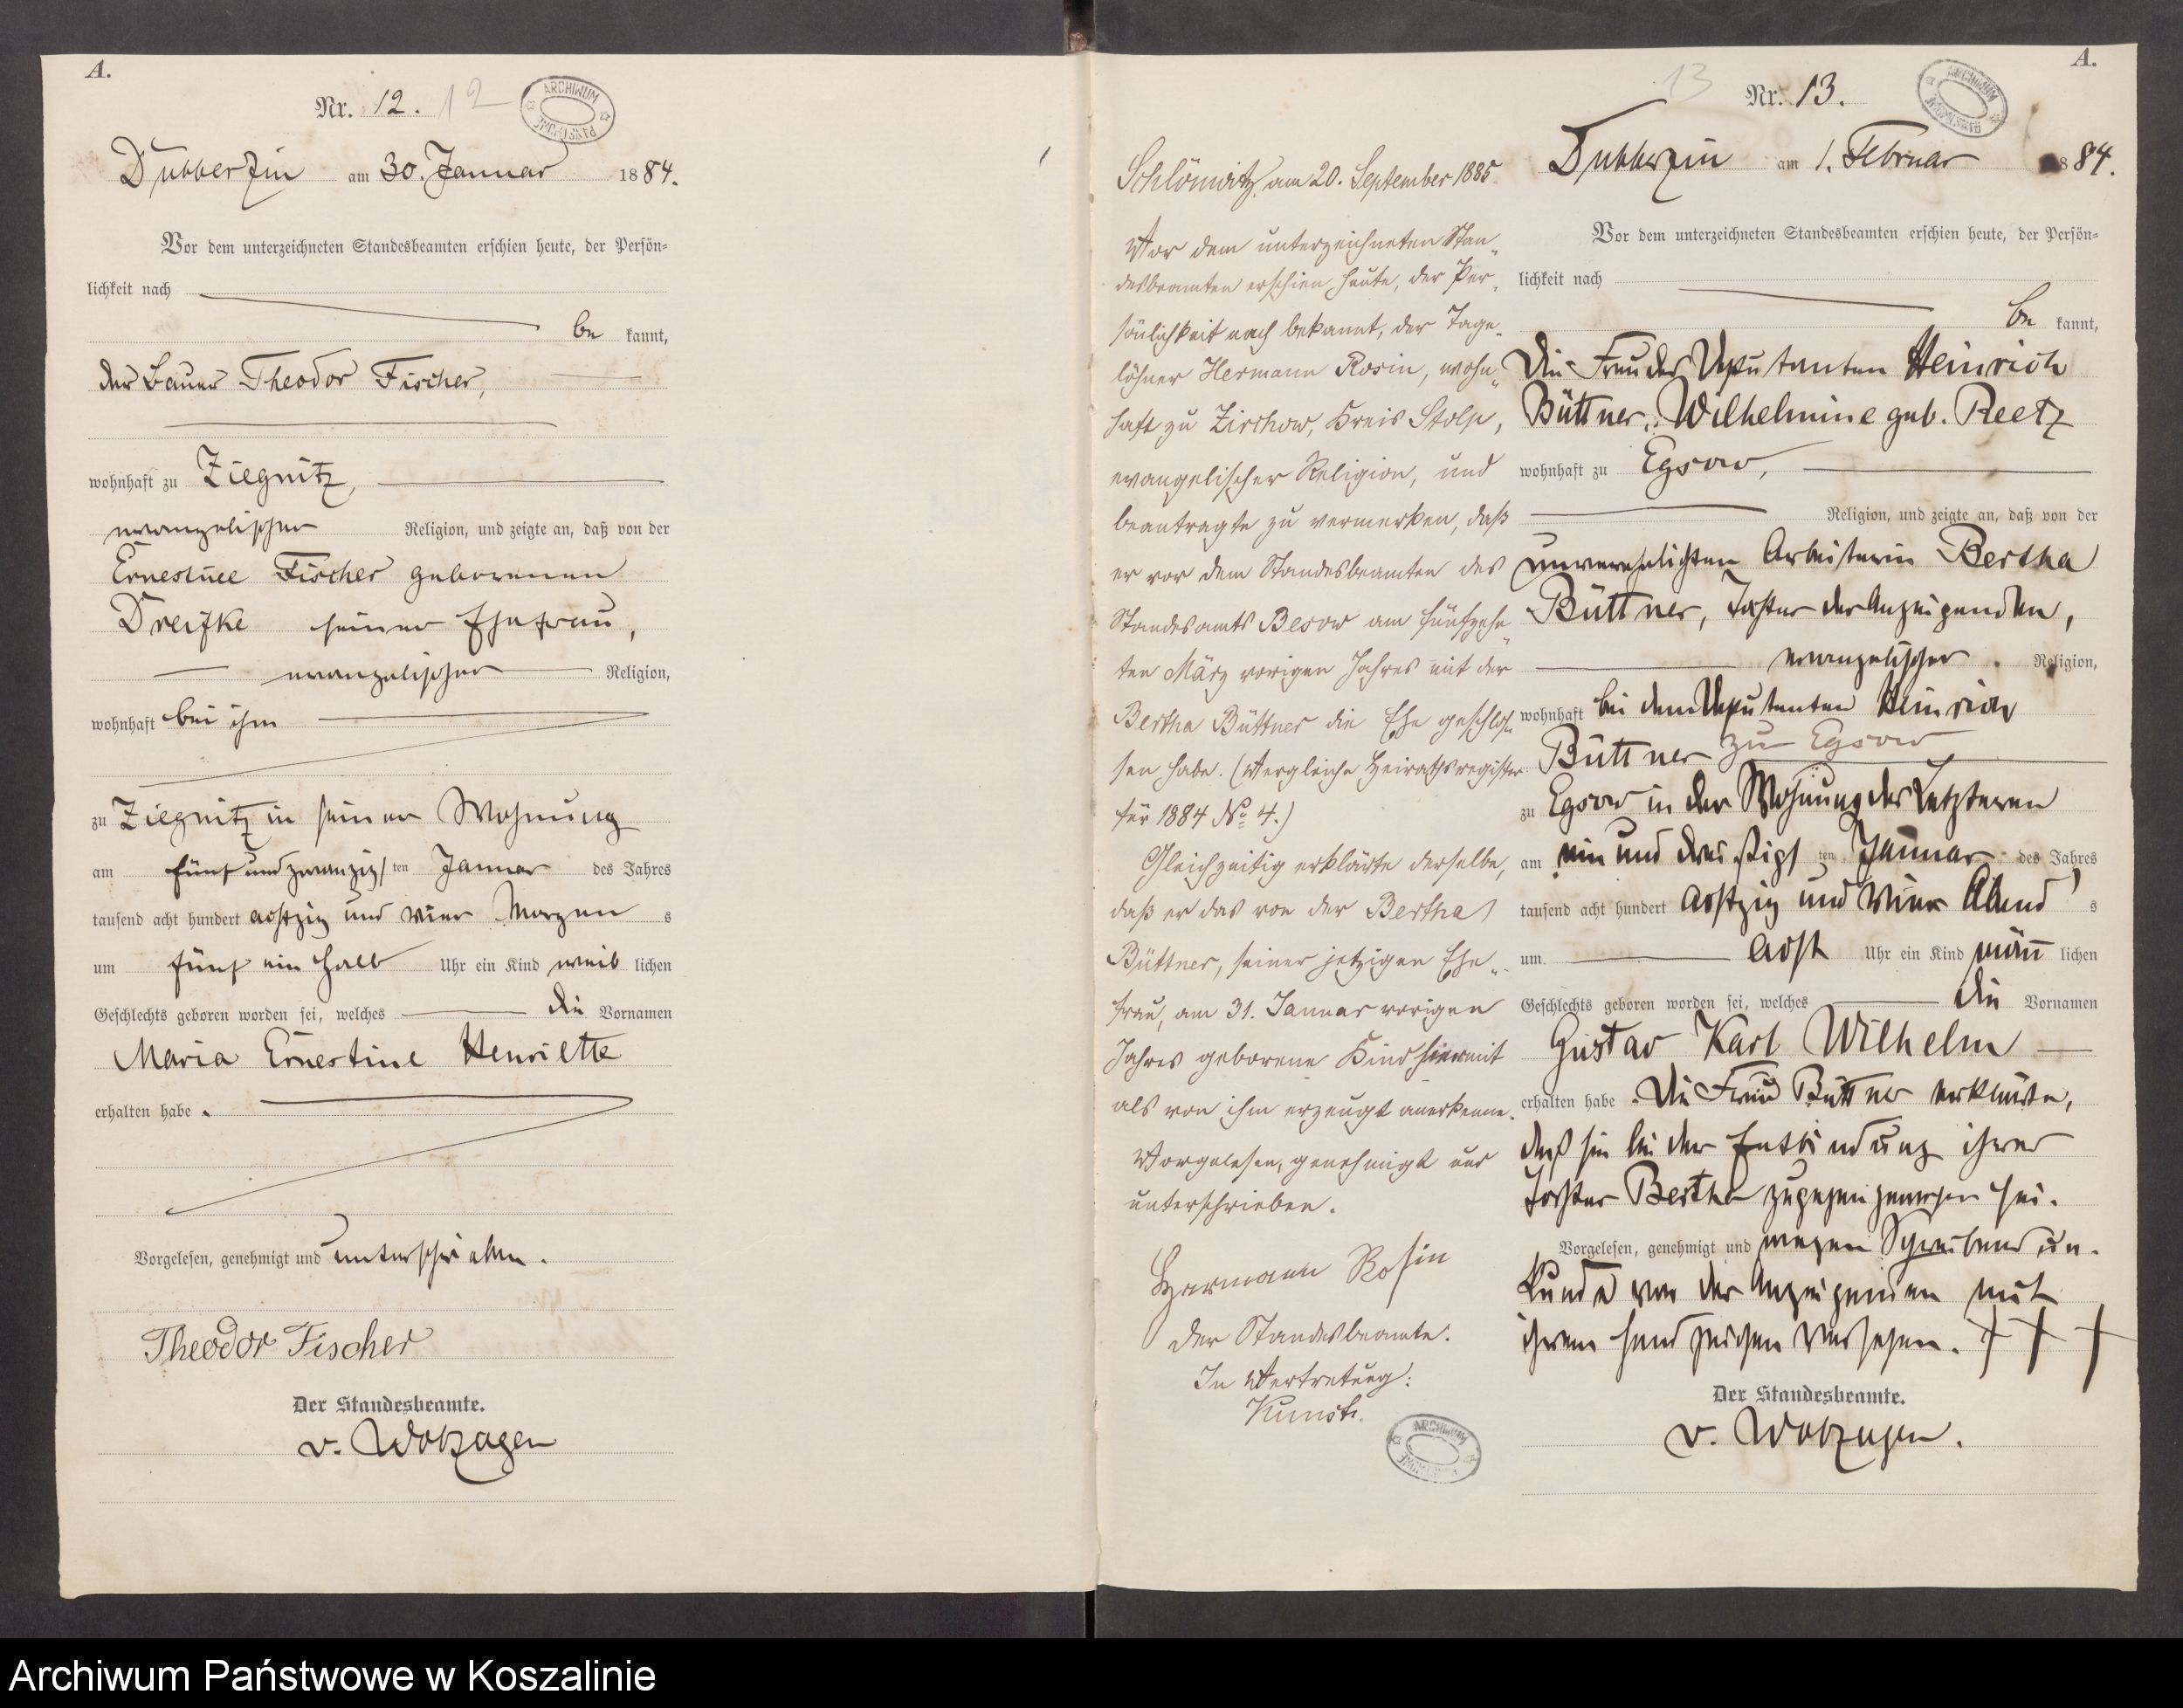 A.
Nr. 12. 12
ARCHIWUM PAŃSTWOWE
Dubberzin am 30. Januar 1884.
Vor dem unterzeichneten Standesbeamten erschien heute, der Persön=
lichkeit nach
be kannt,
der Bauer Theodor Fischer,
wohnhaft zu Ziegnitz,
evangelischer Religion, und zeigte an, daß von der
Ernestine Fischer geborenen
Dreifke seiner Ehefrau,
evangelischer Religion,
wohnhaft bei ihm
zu Ziegnitz in seiner Wohnung
am fünf und zwanzigs ten Januar des Jahres
tausend acht hundert achtzig und vier Morgen s
um fünf ein halb Uhr ein Kind weib lichen
Geschlechts geboren worden sei, welches die Vornamen
Maria Ernestine Henriette
erhalten habe.
Vorgelesen, genehmigt und unterschrieben.
Theodor Fischer
Der Standesbeamte.
v. Wobzagen
Schlönwitz, am 20. September 1885
Vor dem unterzeichneten Stan„
desbeamten erschien heute, der Per„
sönlichkeit nach bekannt, der Tage„
löhner Hermann Rosin, wohn„
haft zu Zirchow, Kreis Stolp,
evangelischer Religion, und
beantragte zu vermerken, daß
er vor dem Standesbeamten des
Standesamts Besow am fünfzehn„
ten März vorigen Jahres mit der
Bertha Büttner die Ehe geschlos„
sen habe. (Vergleiche Heirathsregister
für 1884 No 4.)
Gleichzeitig erklärte derselbe,
daß er das von der Bertha
Büttner, seiner jetzigen Ehe„
frau, am 31. Januar vorigen
Jahres geborene Kind hiermit
als von ihm erzeugt anerkenne.
Vorgelesen, genehmigt und
unterschrieben.
Hermann Rosin
Der Standesbeamte.
In Vertretung:
ARCHIWUM PAŃSTWOWE
A.
13 Nr. 13.
ARCHIWUM PAŃSTWOWE
Dubberzin am 1. Februar 1884.
Vor dem unterzeichneten Standesbeamten erschien heute, der Persön=
lichkeit nach
be kannt,
die Frau des Deputanten Heinrich
Büttner, Wilhelmine geb. Reetz
wohnhaft zu Egsow,
Religion, und zeigte an, daß von der
unverehelichten Arbeiterin Bertha
Büttner, Tochter der Anzeigenden,
evangelischer Religion,
wohnhaft bei dem Deputanten Heinrich
Büttner zu Egsow
zu Egsow in der Wohnung des Letzteren
am ein und dreißigs ten Januar des Jahres
tausend acht hundert achtzig und vier Abend s
um acht Uhr ein Kind männ lichen
Geschlechts geboren worden sei, welches die Vornamen
Gustav Karl Wilhelm
erhalten habe. Die Frau Büttner erklärte,
daß sie bei der Entbindung ihrer
Tochter Bertha zugegen gewesen sei.
Vorgelesen, genehmigt und wegen Schreibens un-
kunde von der Anzeigenden mit
ihrem Handzeichen versehen. +++
Der Standesbeamte.
v. Wobzagen.
Archiwum Państwowe w Koszalinie